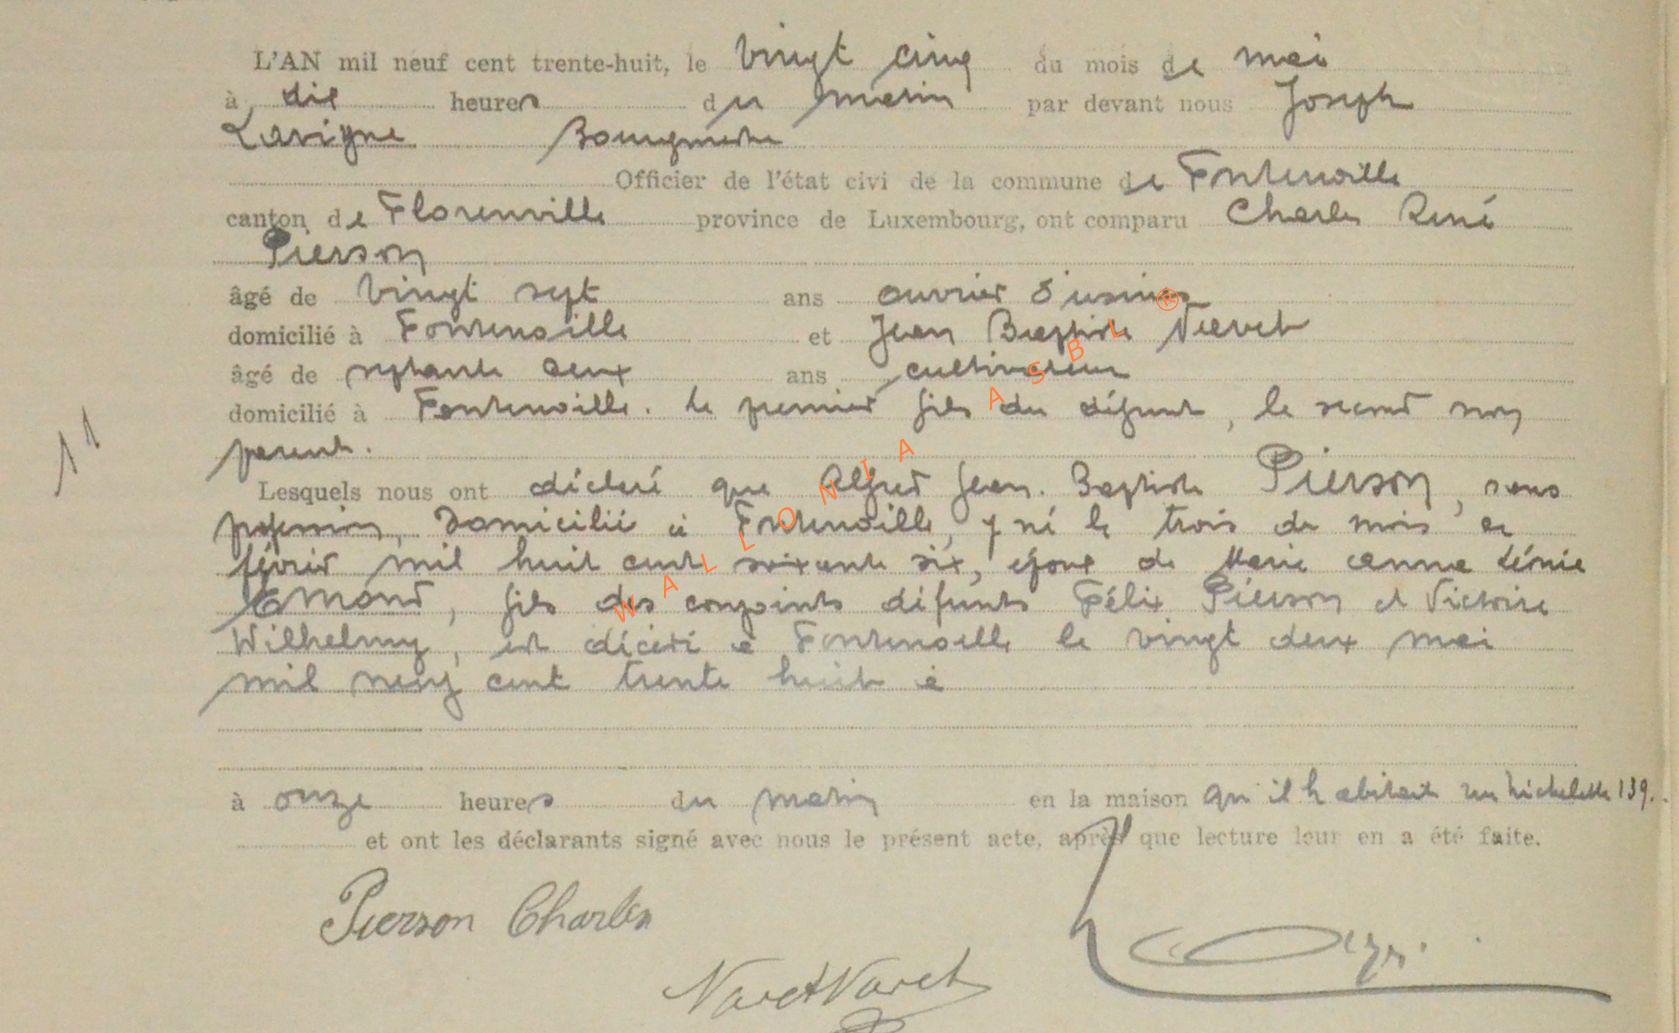 L'AN mil neuf cent trente-huit, le vingt cinq du mois de mai
à dix heures du matin par devant nous Joseph
Lavigne Bourgmestre
Officier de l'état civi de la commune de Fontenoille
canton de Florenville province de Luxembourg, ont comparu Charles René
Pierson
âgé de vingt sept ans ouvrier d'usines
domicilié à Fontenoille et Jean Baptiste
âgé de septante deux ans cultivateur
domicilié à Fontenoille. le premier fils du défunt, le second non
parent.
11
Lesquels nous ont déclaré que Alfred Jean. Baptiste Pierson, sans
profession, domicilié à Fontenoille, y né le trois du mois de
février mil huit cent soixante six, époux de Marie Anna Léonie
Emond, fils des conjoints défunts Félix Pierson et Victoire
Wilhelmy, est décédé à Fontenoille le vingt deux mai
mil neuf cent trente huit à
à onze heures du matin en la maison qu'il habitait 139.
et ont les déclarants signé avec nous le présent acte, après que lecture leur en a été faite.
Pierson Charles
WALLONIA ASBL ®